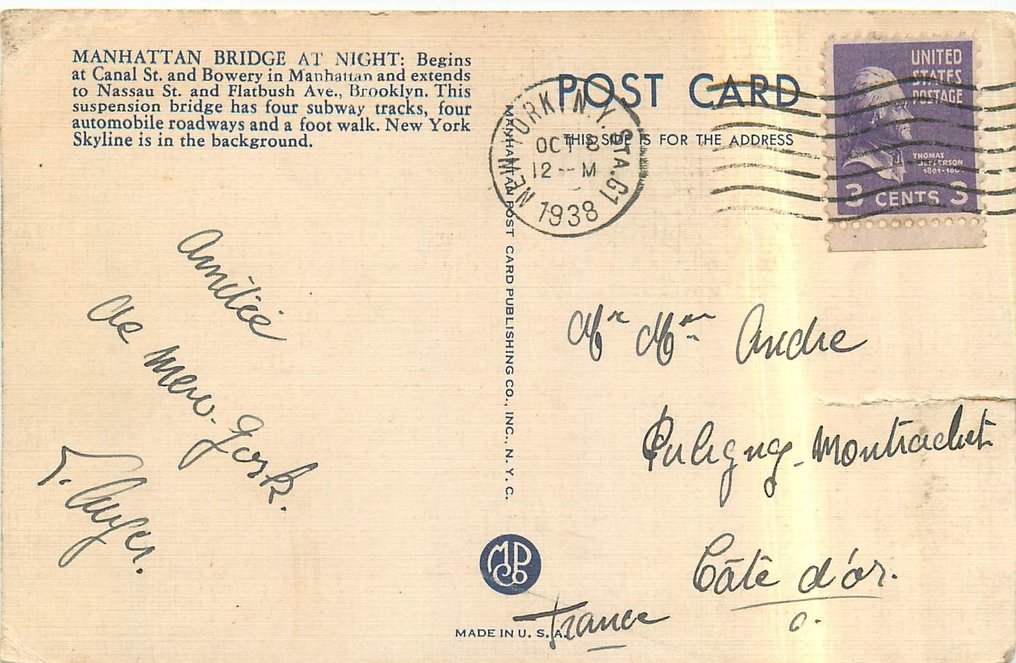 MANHATTAN BRIDGE AT NIGHT: Begins
at Canal St. and Bowery in Manhattan and extends
to Nassau St. and Flatbush Ave., Brooklyn. This
suspension bridge has four subway tracks, four
automobile roadways and a foot walk. New York
Skyline is in the background.
POST CARD
THIS SIDE IS FOR THE ADDRESS
NEW YORK N.Y. STA. G1
OCT 8
12--M
1938
UNITED
STATES
POSTAGE
THOMAS
JEFFERSON
3 CENTS 3
MANHATTAN POST CARD PUBLISHING CO., INC., N.Y.C.
Amitié
de New-York.
Auger.
Mr Mme André
Puligny-Montrachet
Côte d'or.
France
MPCo
MADE IN U.S.A.